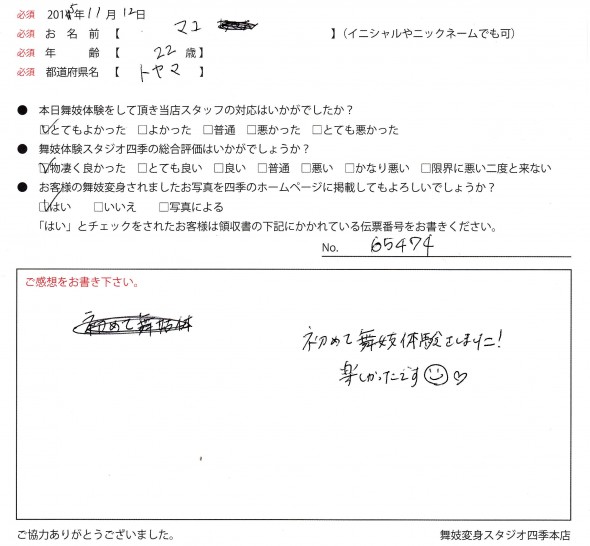 必須 2015年11月12日
必須 お名前【 マユ 】(イニシャルやニックネームでも可)
必須 年齢【 22歳】
必須 都道府県名【 トヤマ】
● 本日舞妓体験をして頂き当店スタッフの対応はいかがでしたか？
☑とてもよかった □よかった □普通 □悪かった □とても悪かった
● 舞妓体験スタジオ四季の総合評価はいかがでしょうか？
☑物凄く良かった □とても良い □良い □普通 □悪い □かなり悪い □限界に悪い二度と来ない
● お客様の舞妓変身されましたお写真を四季のホームページに掲載してもよろしいでしょうか？
☑はい □いいえ □写真による
「はい」とチェックをされたお客様は領収書の下記にかかれている伝票番号をお書きください。
No. 65474
ご感想をお書き下さい。
初めて舞妓体
初めて舞妓体験しました！
楽しかったです☺♡
ご協力ありがとうございました。 舞妓変身スタジオ四季本店